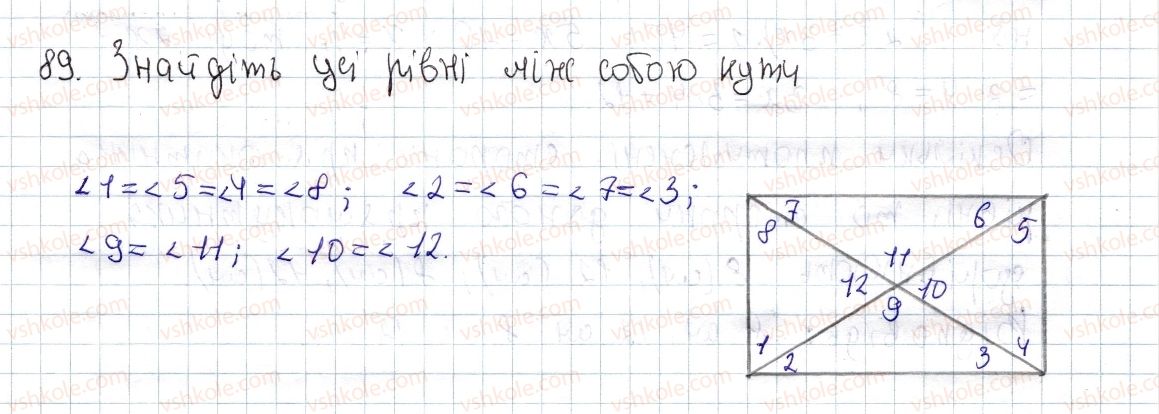 89. Знайдіть усі рівні між собою кути
∠1 = ∠5 = ∠4 = ∠8; ∠2 = ∠6 = ∠7 = ∠3;
∠9 = ∠11; ∠10 = ∠12.
7 6
8 5
11
12 10
9
1 4
2 3
vshkole.com